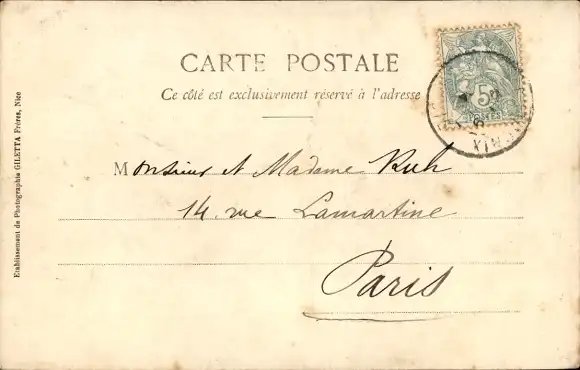 CARTE POSTALE
Ce côté est exclusivement réservé à l'adresse
Monsieur et Madame Kuh
14, rue Lamartine
Paris
Etablissement de Photographie GILETTA Frères, Nice
5
POSTES